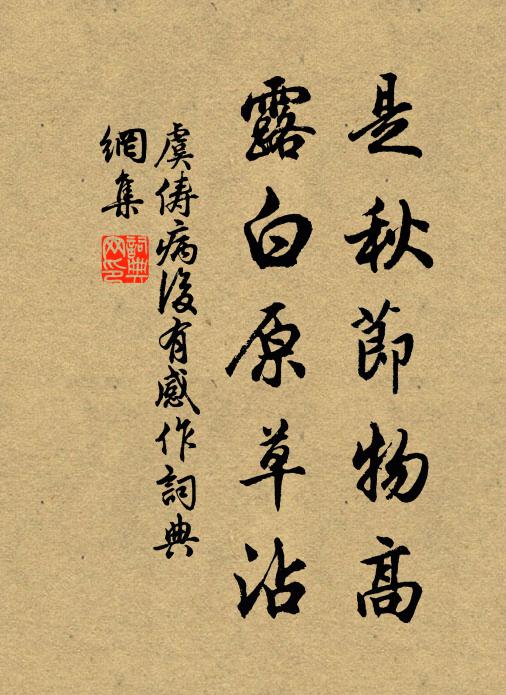 是秋節物高
露白原草沾
虞儔病後有感作詞典
網集
詞典
网印